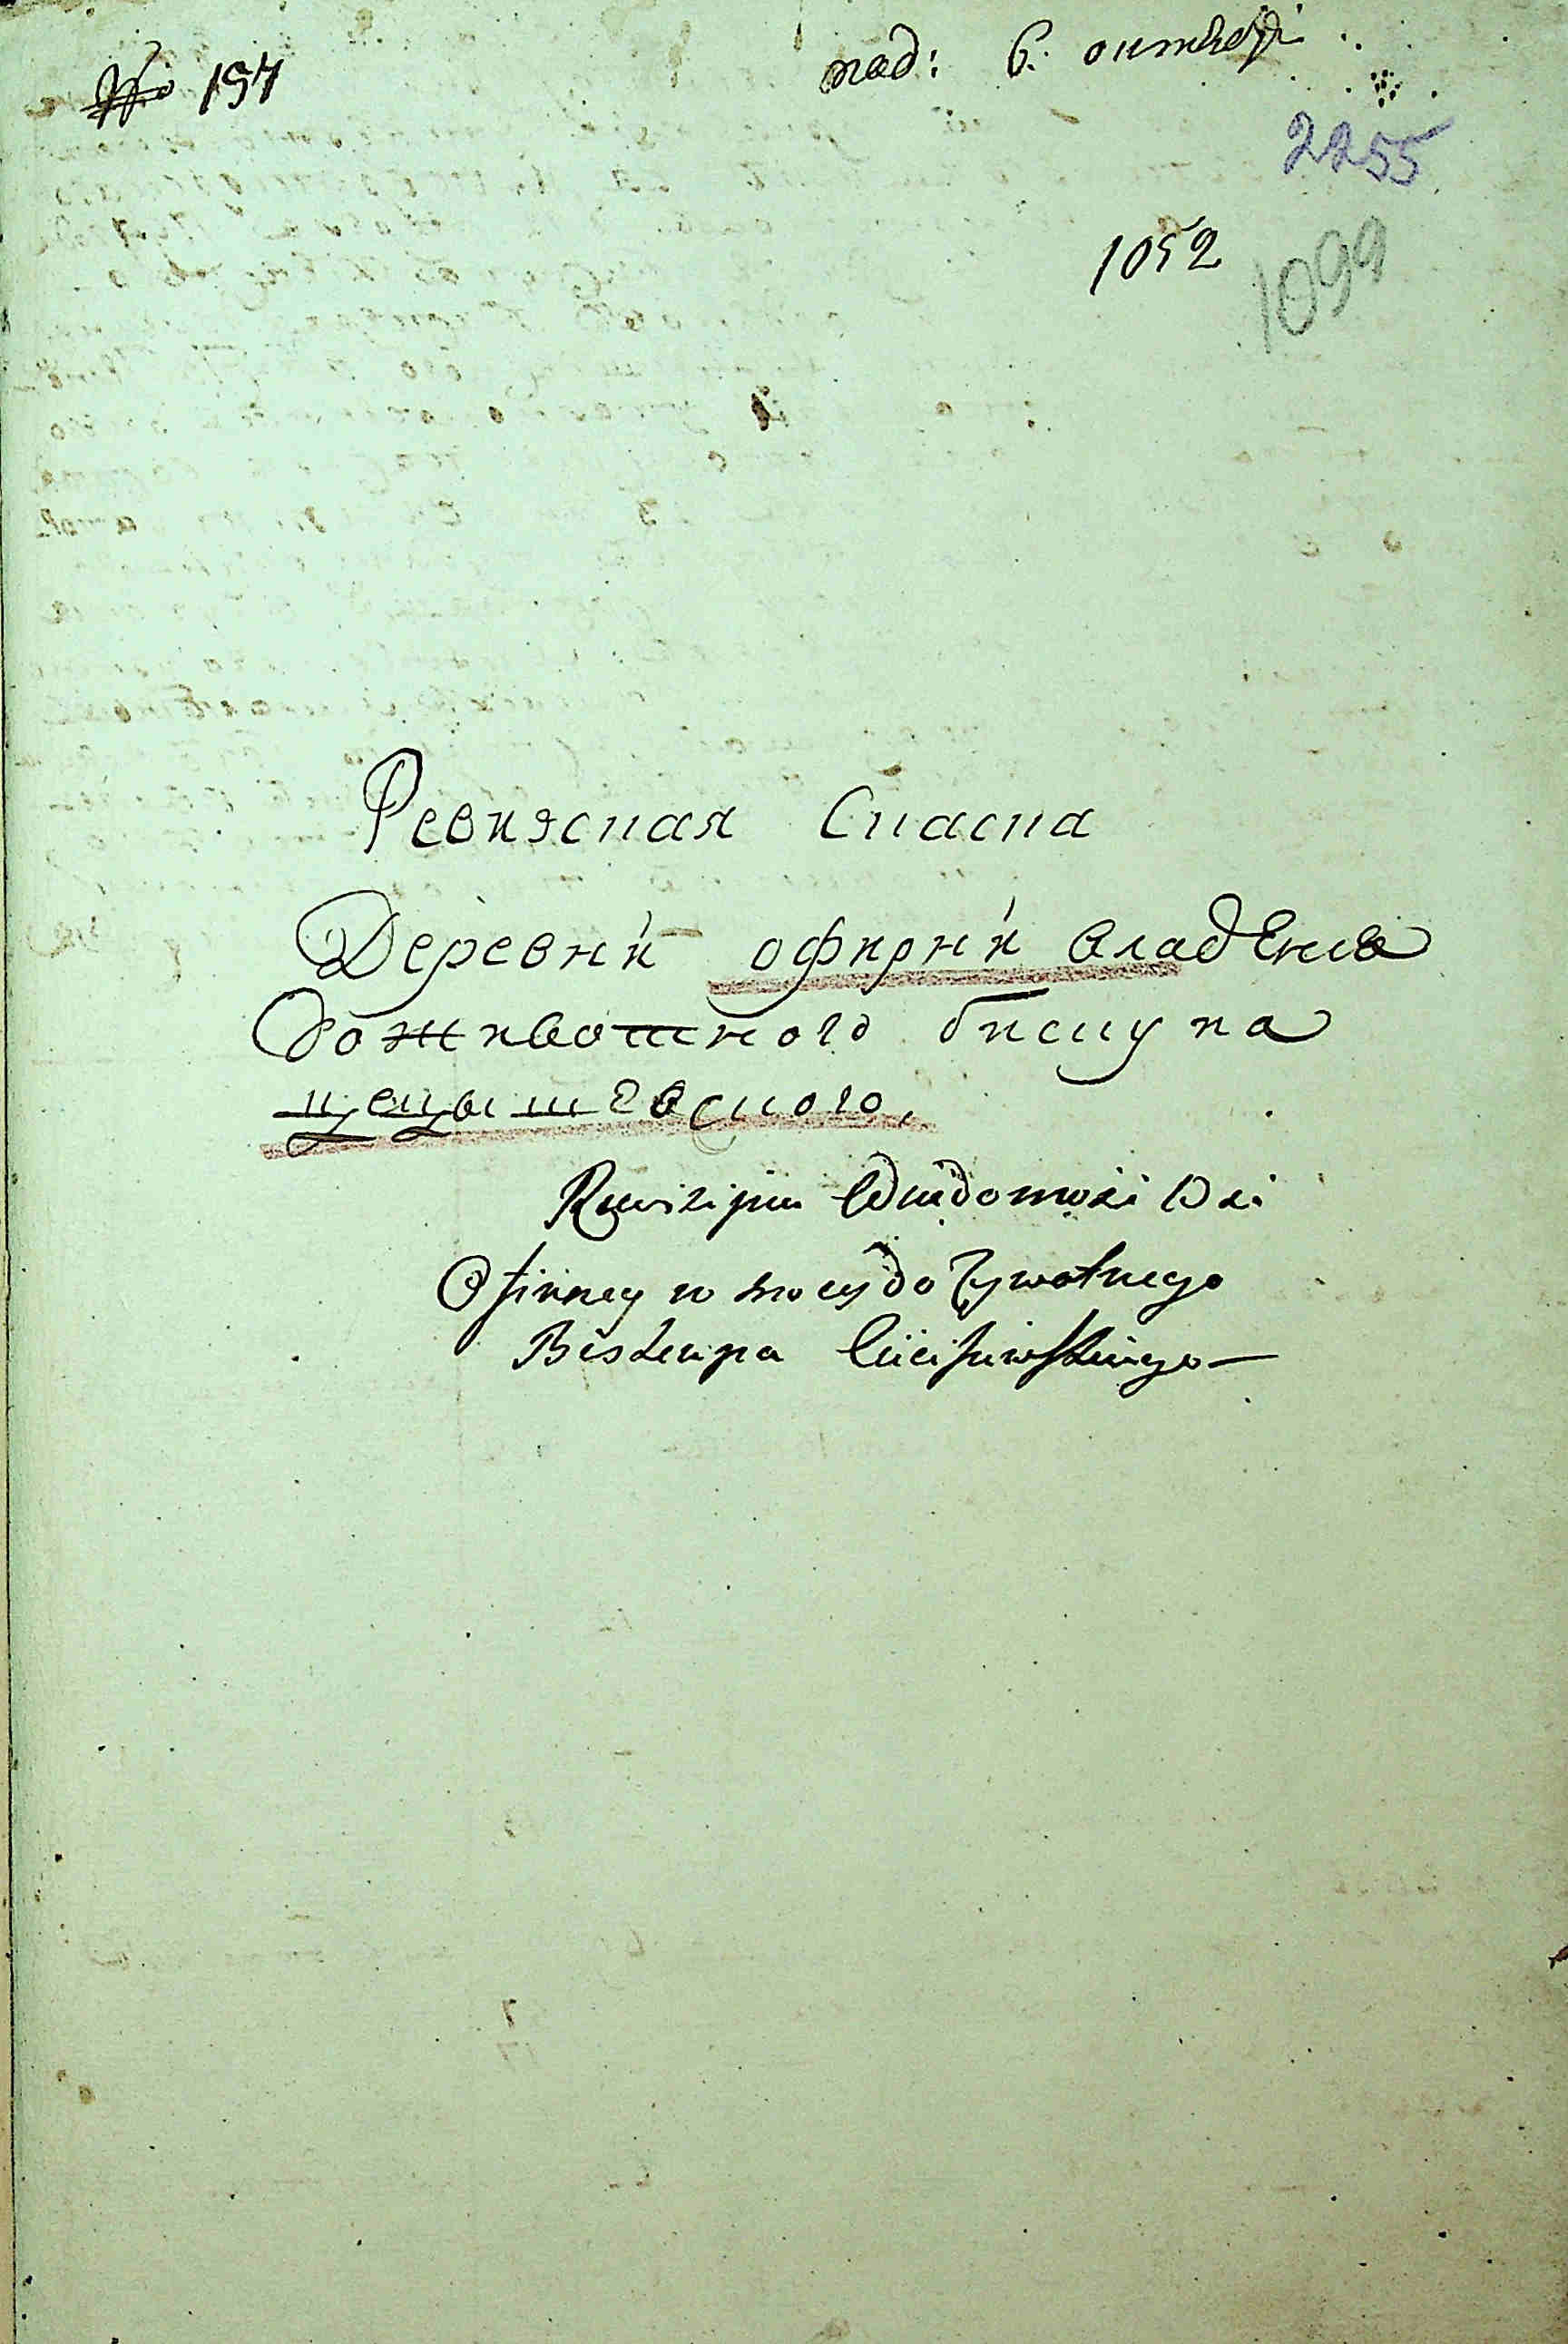 № 157
под: 6. октября
2255
1052
1099
Ревизская Сказка
Деревни офирни владения
Доживотного бискупа
цецишевского,
Rewizijna Wiadomość Wsi
Ofirney w mocy dożywotnego
Biskupa Cieciszewskiego